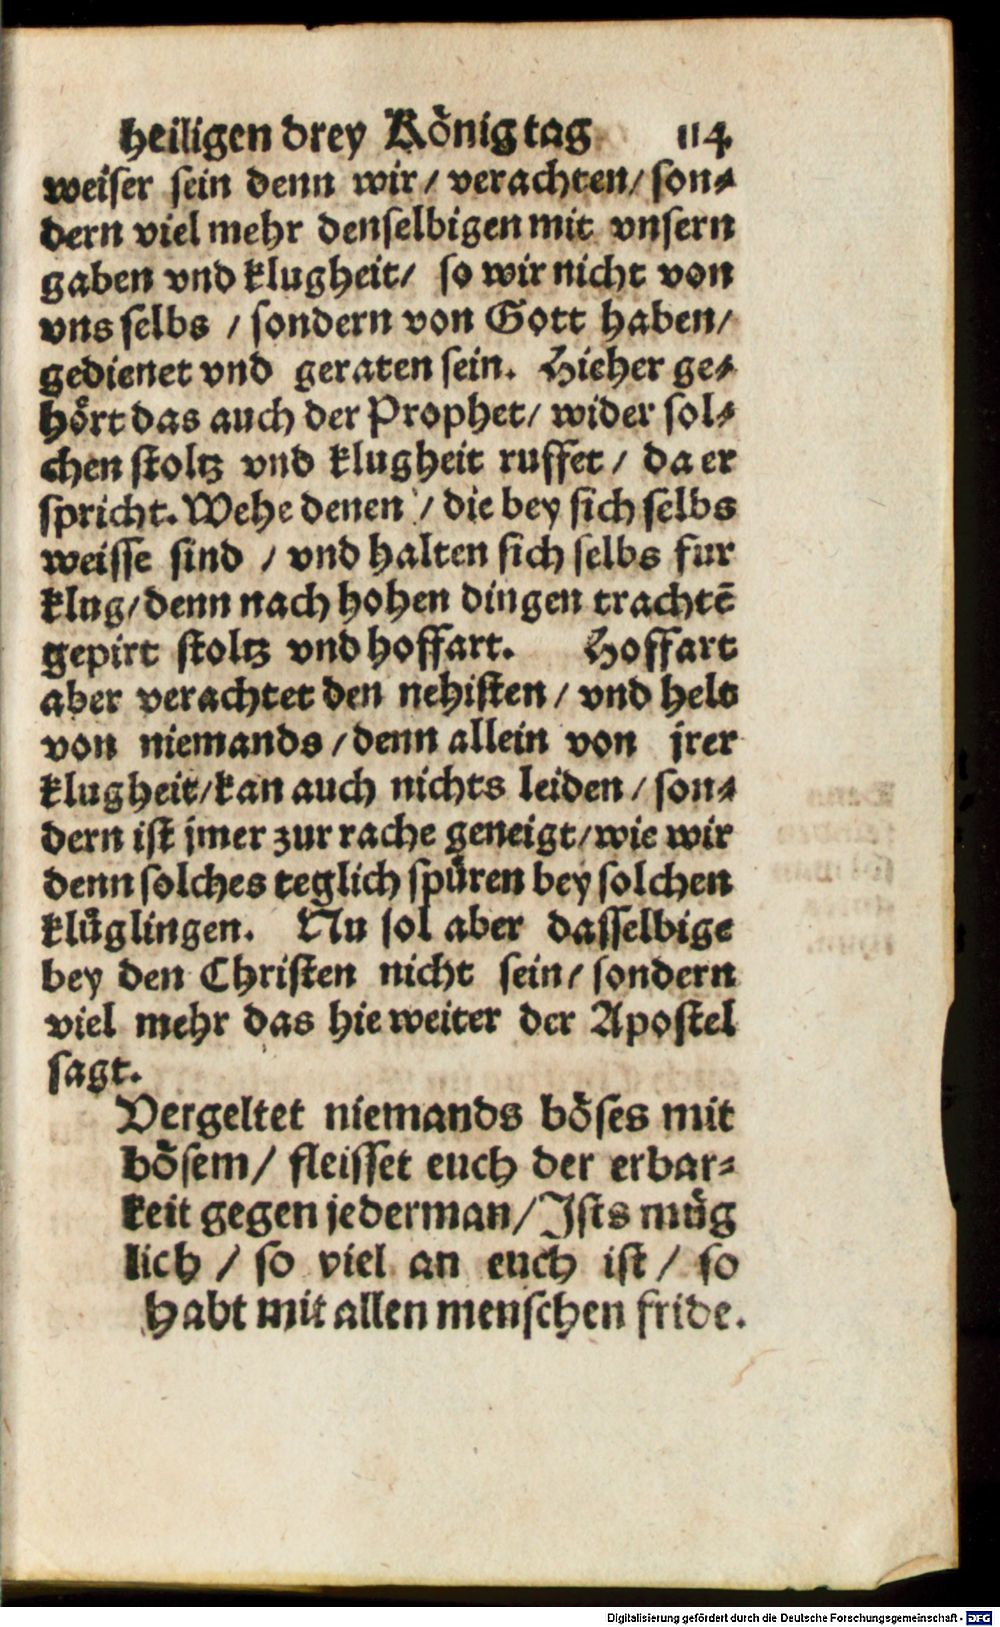 heiligen drey König tag 114
weiser sein denn wir / verachten / son-
dern viel mehr denselbigen mit vnsern
gaben vnd klugheit / so wir nicht von
vns selbs / sondern von Gott haben /
gedienet vnd geraten sein. Hieher ge-
hört das auch der Prophet / wider sol-
chen stoltz vnd klugheit ruffet / da er
spricht. Wehe denen / die bey sich selbs
weisse sind / vnd halten sich selbs fur
klug / denn nach hohen dingen trachtē
gepirt stoltz vnd hoffart. Hoffart
aber verachtet den nehisten / vnd helt
von niemands / denn allein von jrer
klugheit / kan auch nichts leiden / son-
dern ist jmer zur rache geneigt / wie wir
denn solches teglich spüren bey solchen
klüglingen. Nu sol aber dasselbige
bey den Christen nicht sein / sondern
viel mehr das hie weiter der Apostel
sagt.
Vergeltet niemands böses mit
bösem / fleisset euch der erbar-
keit gegen jederman / Ists müg
lich / so viel an euch ist / so
habt mit allen menschen fride.
Digitalisierung gefördert durch die Deutsche Forschungsgemeinschaft - DFG